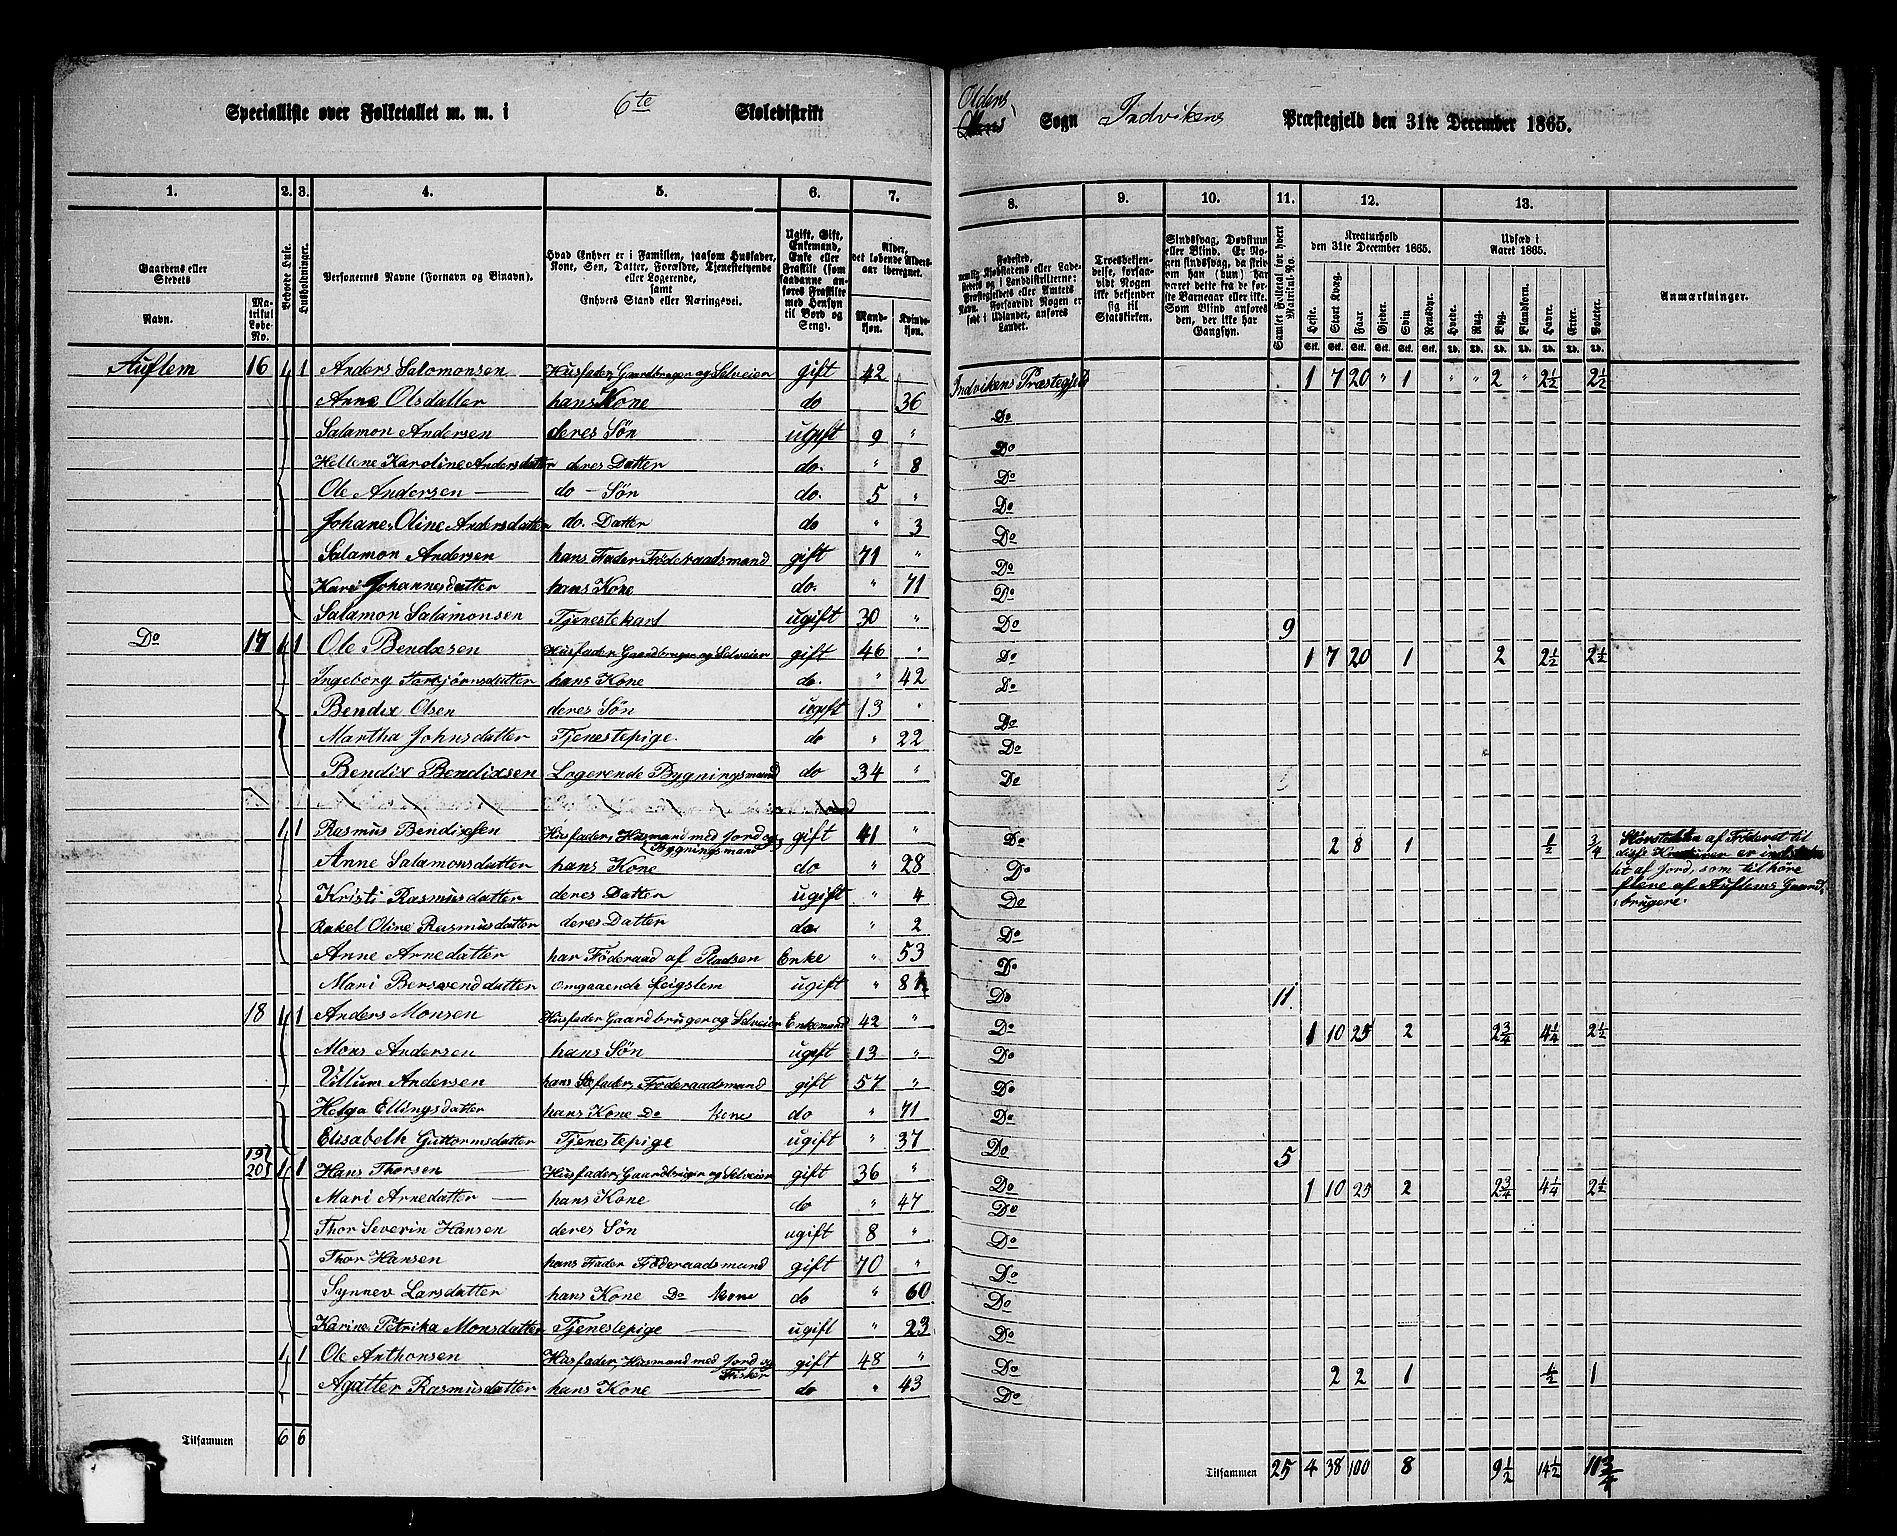 Specialliste over Folketallet m. m. i 6te Skoledistrikt Oldens Sogn Indvikens Præstegjeld den 31te December 1865.
1. 2. 3. 4. 5. 6. 7. 8. 9. 10. 11. 12. 13.
Gaardens eller Stedets Navn. Matrikul Løbe-No. Beboede Huse. Husholdninger. Personernes Navne (Fornavn og Binavn). Hvad Enhver er i Familien, saasom Husfader, Kone, Søn, Datter, Forældre, Tjenestetyende eller Logerende, samt Enhvers Stand eller Næringsvei. Ugift, Gift, Enkemand, Enke eller Fraskilt (som saadanne anføres Fraskilte med Hensyn til Bord og Seng). Alder, det løbende Aldersaar iberegnet. Mandkjøn. Kvindekjøn.
Fødested, Troesbekjendelse, forsaavidt Nogen ikke bekjender sig til Statskirken. Samlet Folketal for hvert Matrikul-No. Kreaturhold den 31te December 1865. Udsæd i Aaret 1865. Anmærkninger.
Heste. Stort Kvæg. Faar. Gjeder. Svin. Rensdyr. Hvede. Rug. Byg. Blandkorn. Havre. Erter. Poteter.
Auflem 16 1 1 Anders Salomonsen Husfader, Gaardbruger og Selveier gift 42 Indvikens Præstegjeld 1 7 20 " 1 " " 2 " 2½ 2½
Anne Olsdatter hans Kone do 36 Do
Salamon Andersen deres Søn ugift 9 " Do
Hellene Karoline Andersdatter deres Datter do. " 8 Do
Ole Andersen — do - Søn do. 5 " Do
Johane Oline Andersdatter do. Datter do " 3 Do
Salamon Andersen hans Fader Föderaadsmand gift 71 " Do
Kari Johannesdatter hans Kone do. " 71 Do
Salamon Salamonsen Tjenestekarl ugift 30 " Do 9
Do 17 1 1 Ole Bendixsen Husfader, Gaardbruger og Selveier gift 46 " Do 1 7 20 1 2 2½ 2½
Ingeborg Torbjørnsdatter hans Kone do. " 42 Do
Bendix Olsen deres Søn ugift 13 " Do
Martha Johnsdatter Tjenestepige. do " 22 Do
Bendix Bendixsen Logerende Bygningsmand do 34 " Do
1 1 Rasmus Bendixsen Husfader, Husmand med Jord og Bygningsmand gift 41 " Do 2 8 1 ½ ¾ Størstedelen af Föderet til
Anne Salamonsdatter hans Kone do " 28 Do
tet af Jord, som tilhöre
Kristi Rasmusdatter deres Datter ugift " 4 Do flere af Auflems Gaard
brugere.
Rakel Oline Rasmusdatter deres Datter do " 2 Do
Anne Arnedatter har Föderaad af Pladsen Enke " 53 Do
Mari Bersvenddatter Omgaaende Leigslem ugift " 81 Do 11
18 1 1 Anders Monsen Husfader Gaardbruger og Selveier Enkemand 42 " Do 1 10 25 2 2¾ 4¼ 2½
Mons Andersen hans Søn ugift 13 " Do
Villum Andersen hans Stfader, Föderaadsmand gift 57 " Do
Helga Ellingsdatter hans Kone Do Kone do " 71 Do
Elisabeth Guttormsdatter Tjenestepige ugift " 37 Do 5
19 20 1 1 Hans Thorsen Husfader, Gaardbruger og Selveier gift 36 " Do 1 10 25 2 2¾ 4¼ 2½
Mari Arnedatter — hans Kone do " 47 Do
Thor Severin Hansen deres Søn ugift 8 " Do
Thor Hansen hans Fader Föderaadsmand gift 70 " Do
Synnev Larsdatter hans Kone Do Kone do " 60 Do
Karine Petrika Monsdatter Tjenestepige ugift " 23 Do
1 1 Ole Anthonsen Husfader, Husmand med Jord og Fisker gift 48 " Do 2 2 1 ½ 1
Agatter Rasmusdatter hans Kone do " 43 Do
Tilsammen 6 6 Tilsammen 25 4 38 100 8 9½ 14½ 11¾